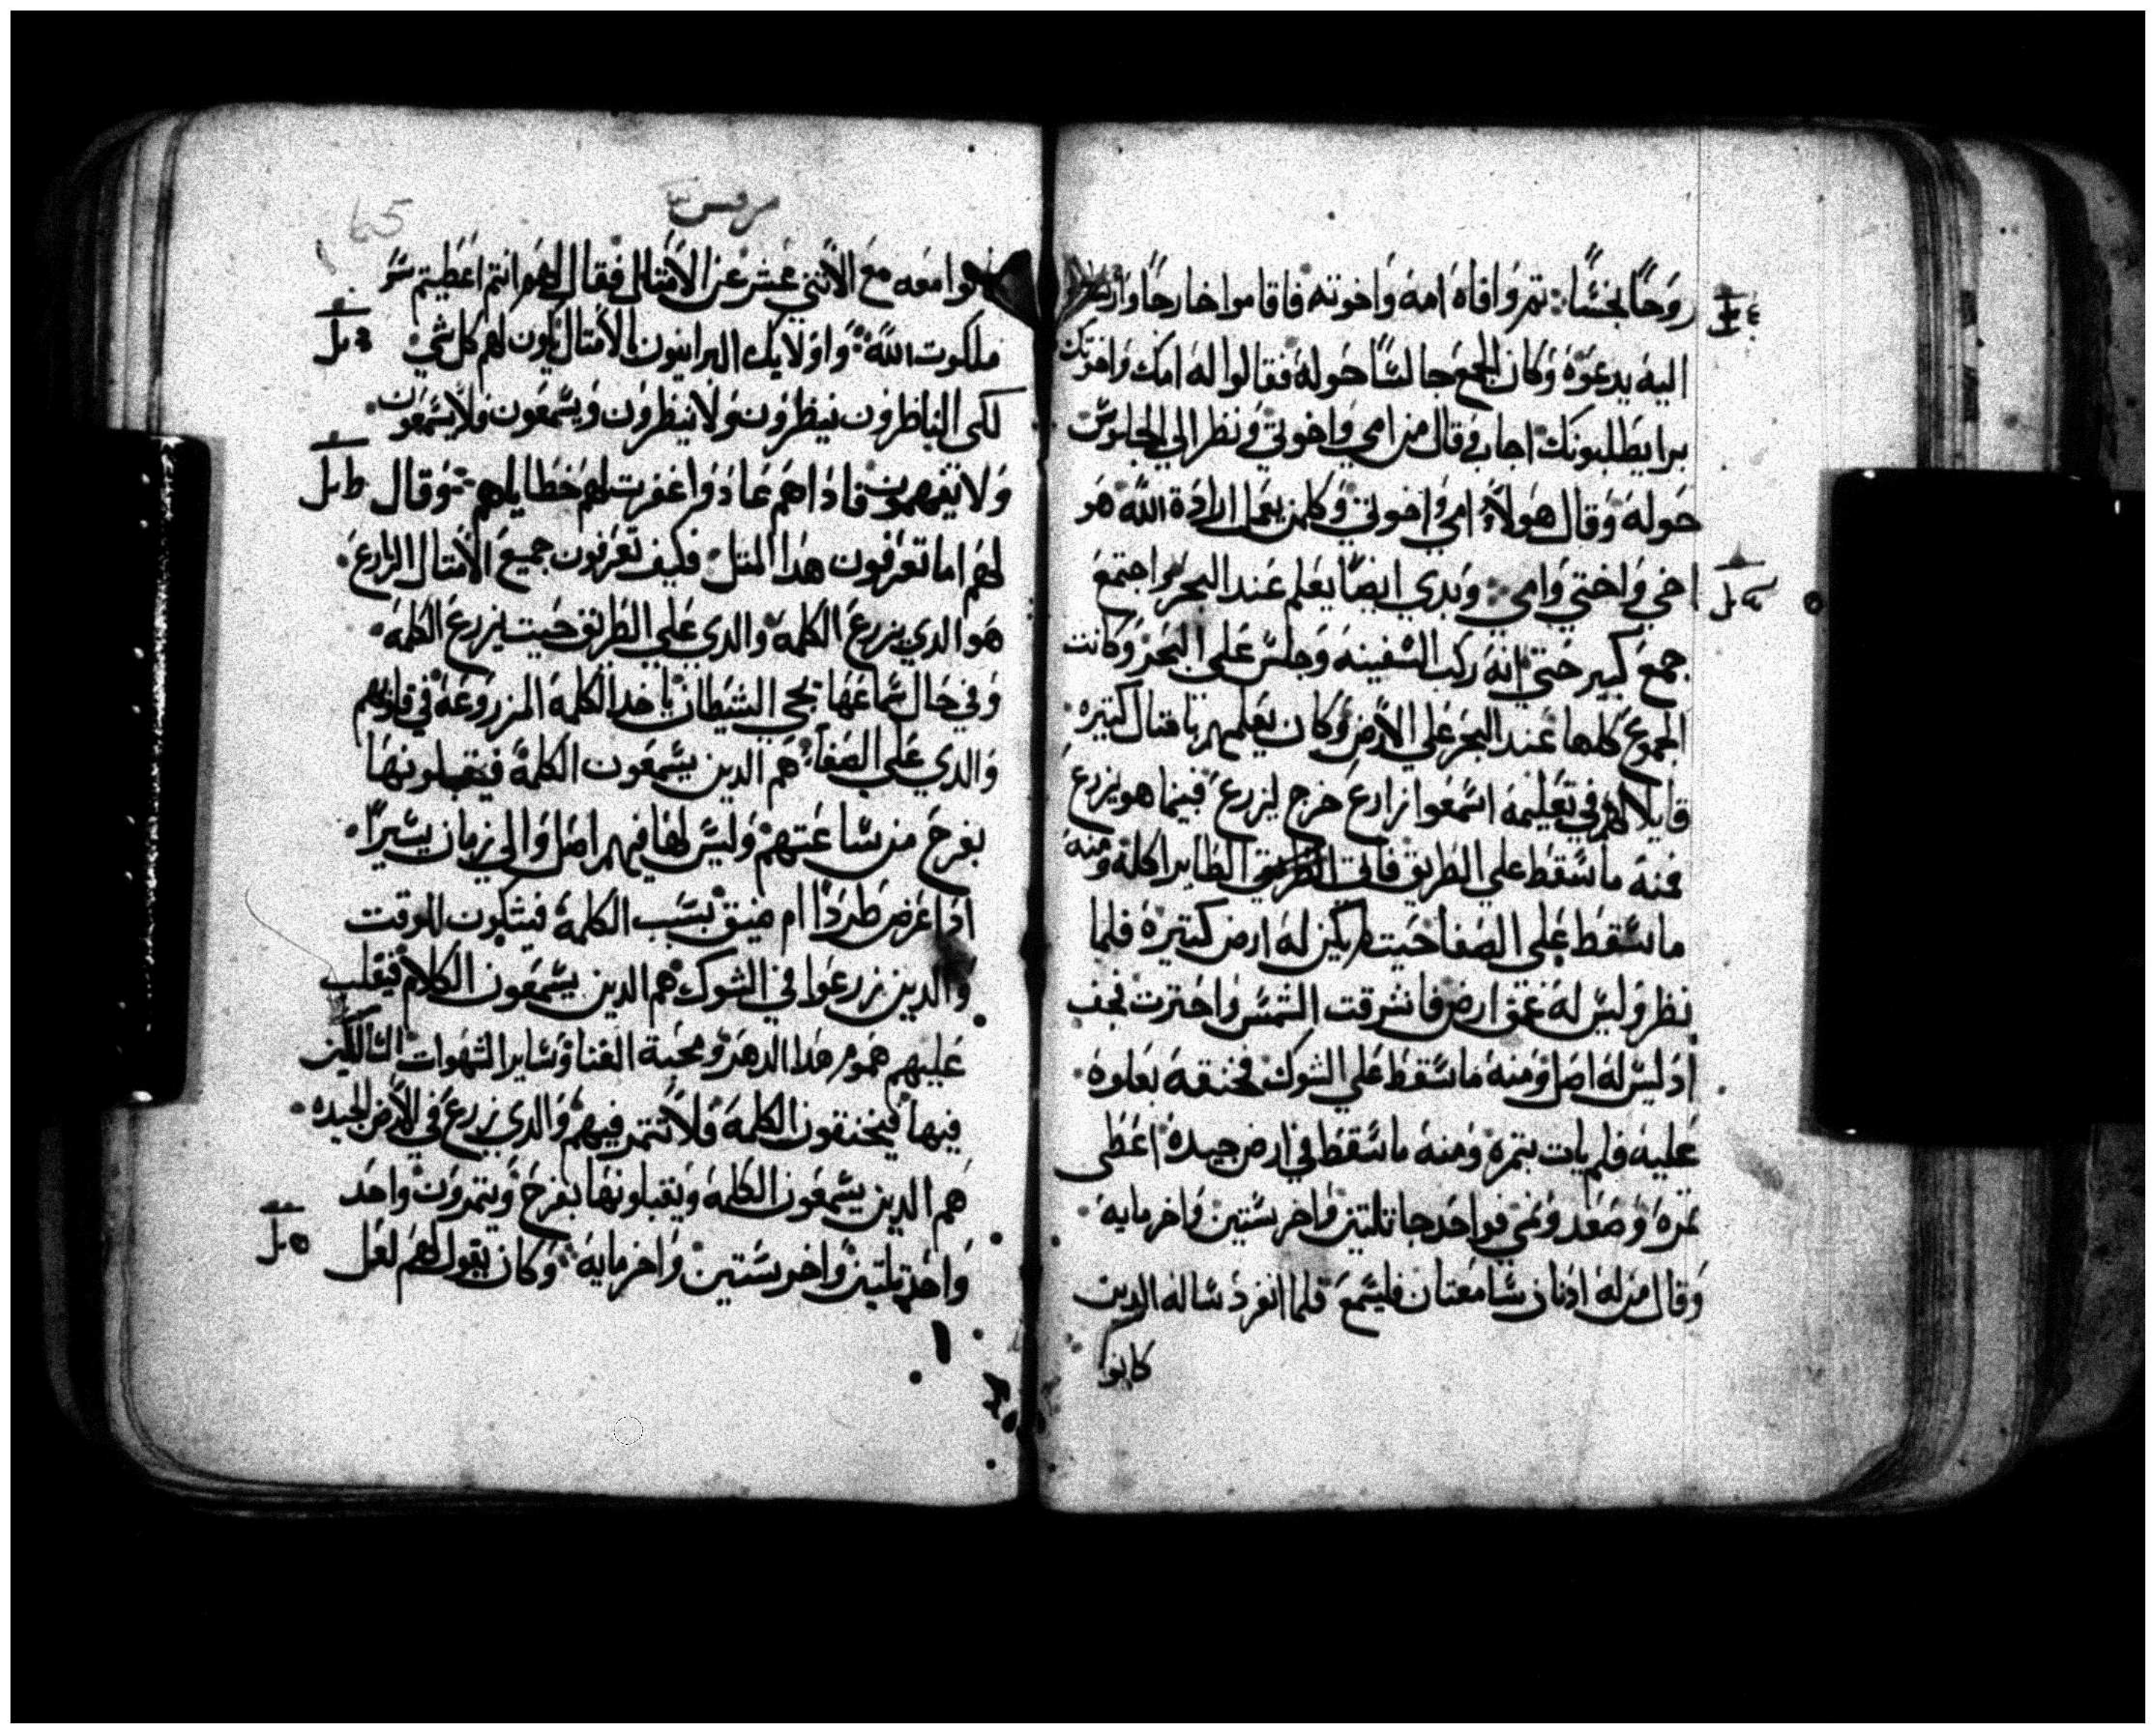 روحًا نجسًا: تم وافاه امه واخوته فاقاموا خارجًا وارسلوا
اليه يدعوه وكان الجمع جالسًا حوله فقالوا له امك واخوتك
برا يطلبونك اجاب وقال من امي واخوتي ونظر الي الجلوس
حوله وقال هولاء امي واخوتي وكلمن يعمل ارادة الله هو
اخي واختي وامي وبدي ايضًا يعلم عند البحر واجتمع
جمع كبير حتي انه ركب السفينه وجلس علي البحر وكانت
الجموع كلها عند البحر علي الارض وكان يعلمهم بامتال كتيره
قايلا لهم في تعليمه اسمعوا زارع خرج ليزرع فبينما هو يزرع
فمنه ما سقط علي الطريق فاتي الطاير اكله ومنه
ما سقط علي الصفا حيت لم يكن له ارض كتيره فلما
نظر وليس له عمق ارض فاشرقت الشمس واحترت نجف
اد ليس له اصل ومنه ما سقط علي الشوك فخنقه بعلوه
عليه فلم يات بتمره ومنه ما سقط في ارض جيده اعطى
تمره وصعد ونمي فواحد جا تلتين واخر ستين واخر مايه
وقال من له ادنان سامعتان فليسمع فلما انفرد ساله الدين
كانوا
مرقس
كانوا معه مع الاتني عشر عن الامتال فقال لهم انتم اعطيتم سر
ملكوت الله واولايك البرانيون بالامتال يكون لهم كل شي
لكى الناظرون ينظرون ولا ينظرون ويسمعون فلا يسمعون
ولا يفهمون فاداهم عادوا غفرت لهم خطاياهم وقال
لهم اما تعرفون هدا المتل فكيف تعرفون جميع الامتال الزارع
هو الدي يزرع الكلمه والدي علي الطريق حيت يزرع الكلمه
وفي حال سماعها يجي الشيطان ياخد الكلمه المزروعه في قلوبهم
والدي علي الصفا هم الدين يسمعون الكلمة فيقبلونها
بفرح من ساعتهم وليس لها فيهم اصل والي زمان يسيرًا
ادا عرض طردًا ام ضيق بسبب الكلمة فيشكون للوقت
والدين زرعوا في الشوك هم الدين يسمعون الكلام فيغلب
عليهم هموم هدا الدهر ومحبة الغنا وساير الشهوات السالكين
فيها فيختنقون الكلمه فلا تتمر فيهم والدي زرع في الارض الجيده
هم الدين يسمعون الكلمه ويقبلونها بفرح ويتمرون واحد
واحد تلتين واخر ستين واخر مايه وكان يقول لهم لعل